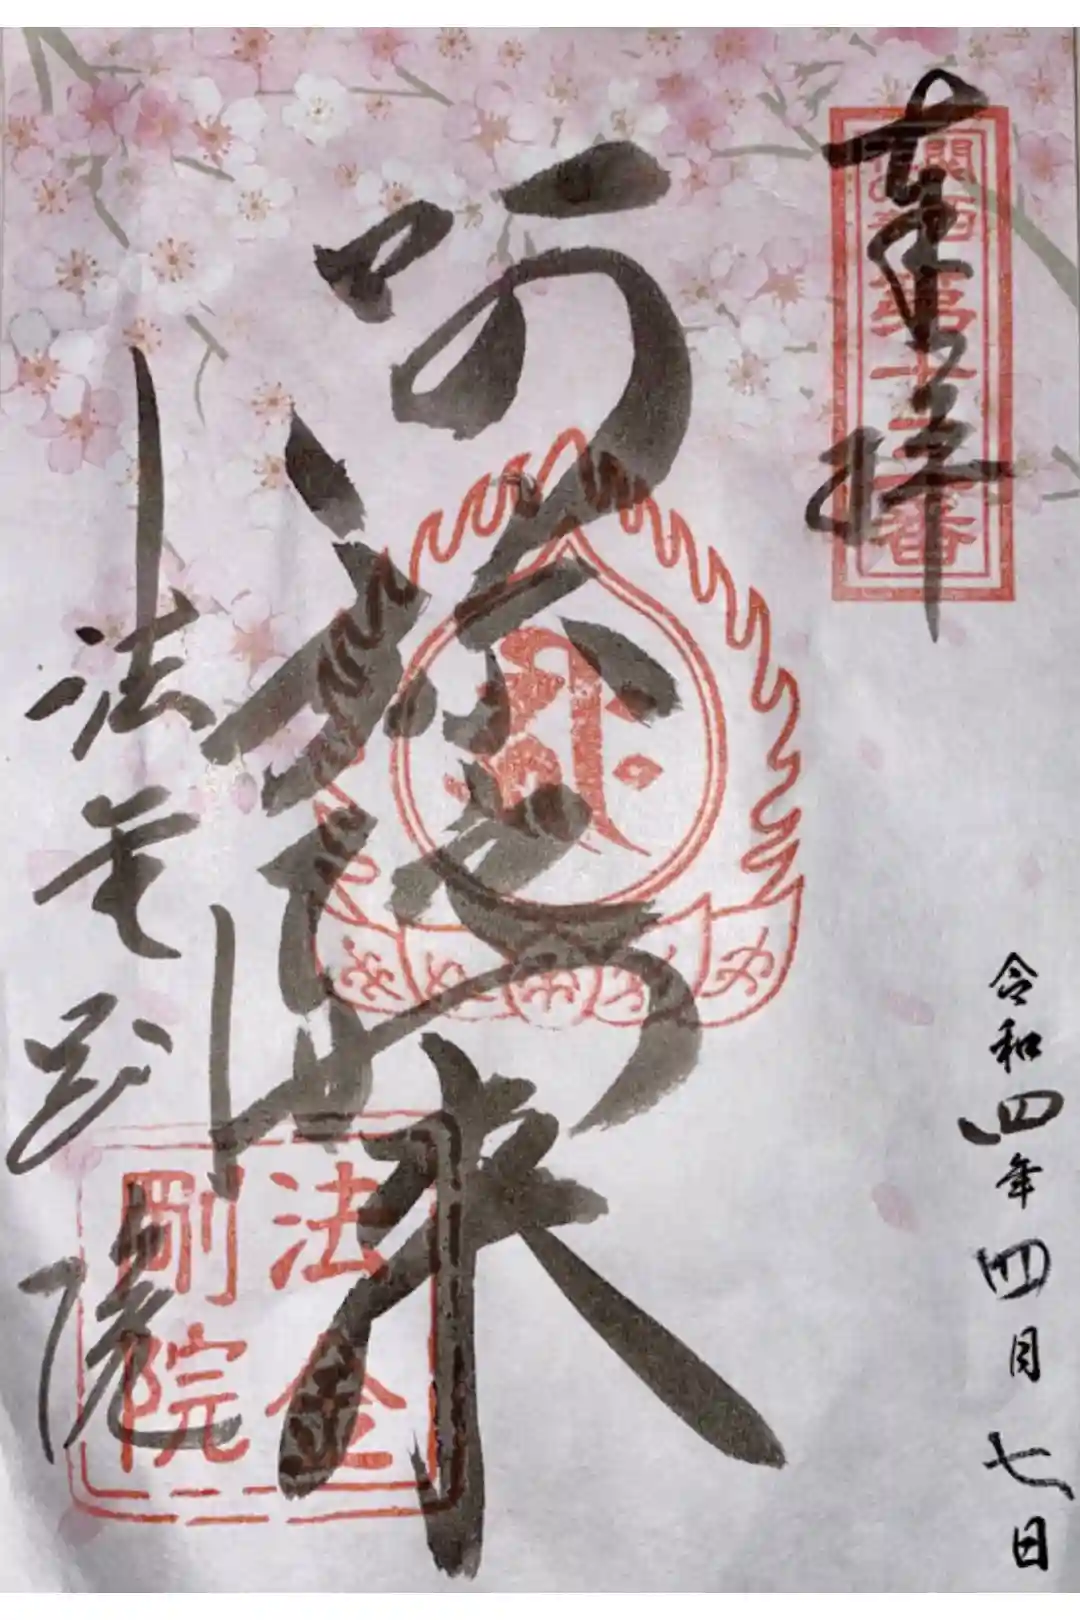 奉拝
関西花の寺
第十三番
令和四年四月七日
阿弥陀如来
法金剛院
法金
剛院